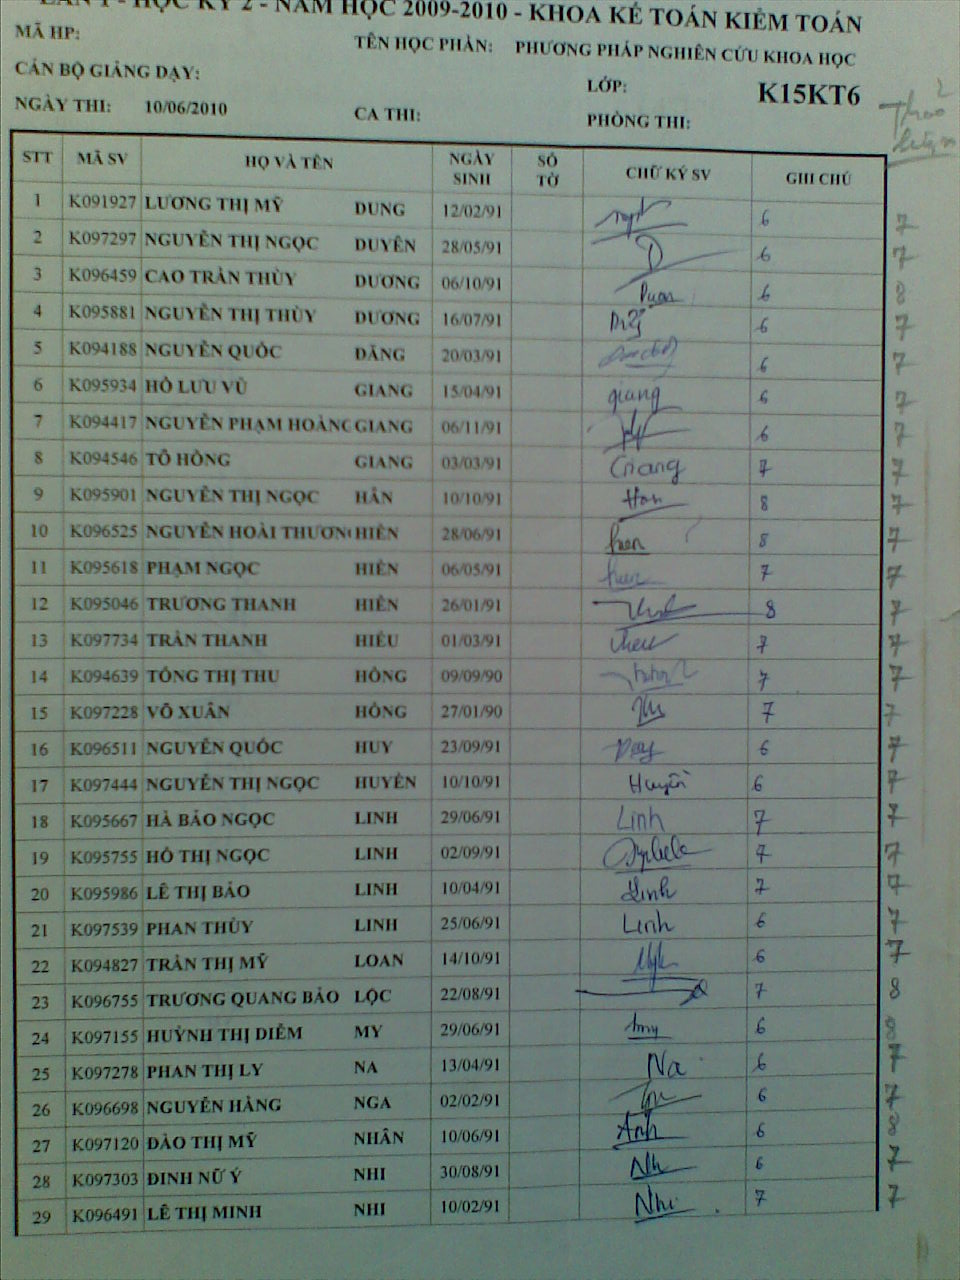 LẦN 1 - HỌC KỲ 2 - NĂM HỌC 2009-2010 - KHOA KẾ TOÁN KIỂM TOÁN
MÃ HP: TÊN HỌC PHẦN: PHƯƠNG PHÁP NGHIÊN CỨU KHOA HỌC
CÁN BỘ GIẢNG DẠY: LỚP: K15KT6
NGÀY THI: 10/06/2010 CA THI: PHÒNG THI:
Thảo luận
STT MÃ SV HỌ VÀ TÊN NGÀY SINH SỐ TỜ CHỮ KÝ SV GHI CHÚ
1 K091927 LƯƠNG THỊ MỸ DUNG 12/02/91 6 7
2 K097297 NGUYỄN THỊ NGỌC DUYÊN 28/05/91 6 7
3 K096459 CAO TRẦN THÙY DƯƠNG 06/10/91 6 8
4 K095881 NGUYỄN THỊ THÙY DƯƠNG 16/07/91 6 7
5 K094188 NGUYỄN QUỐC ĐĂNG 20/03/91 6 7
6 K095934 HỒ LƯU VŨ GIANG 15/04/91 giang 6 7
7 K094417 NGUYỄN PHẠM HOÀNG GIANG 06/11/91 6 7
8 K094546 TÔ HỒNG GIANG 03/03/91 Giang 7 7
9 K095901 NGUYỄN THỊ NGỌC HÂN 10/10/91 Han 8 7
10 K096525 NGUYỄN HOÀI THƯƠNG HIỀN 28/06/91 hien 8 7
11 K095618 PHẠM NGỌC HIỀN 06/05/91 hien 7 7
12 K095046 TRƯƠNG THANH HIỀN 26/01/91 8 7
13 K097734 TRẦN THANH HIẾU 01/03/91 7 7
14 K094639 TỐNG THỊ THU HỒNG 09/09/90 7 7
15 K097228 VÕ XUÂN HỒNG 27/01/90 7 7
16 K096511 NGUYỄN QUỐC HUY 23/09/91 6 7
17 K097444 NGUYỄN THỊ NGỌC HUYỀN 10/10/91 Huyền 6 7
18 K095667 HÀ BẢO NGỌC LINH 29/06/91 Linh 7 7
19 K095755 HỒ THỊ NGỌC LINH 02/09/91 7 7
20 K095986 LÊ THỊ BẢO LINH 10/04/91 Linh 7 7
21 K097539 PHAN THÙY LINH 25/06/91 Linh 6 7
22 K094827 TRẦN THỊ MỸ LOAN 14/10/91 6 7
23 K096755 TRƯƠNG QUANG BẢO LỘC 22/08/91 7 8
24 K097155 HUỲNH THỊ DIỄM MY 29/06/91 my 6 8
25 K097278 PHAN THỊ LY NA 13/04/91 Na 6 7
26 K096698 NGUYỄN HẰNG NGA 02/02/91 6 7
27 K097120 ĐÀO THỊ MỸ NHÂN 10/06/91 6 8
28 K097303 ĐINH NỮ Ý NHI 30/08/91 Nh 6 7
29 K096491 LÊ THỊ MINH NHI 10/02/91 Nhi 7 7